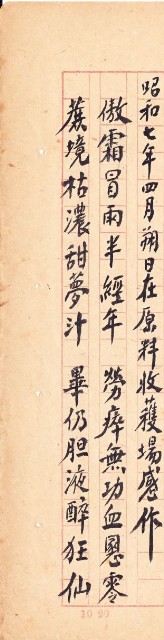 昭和七年四月朔日在原料收獲場感作
傲霜冒雨半經年 勞瘁無功血零
蔗境枯濃甜夢汁 畢仍胆液醉狂仙
10 20